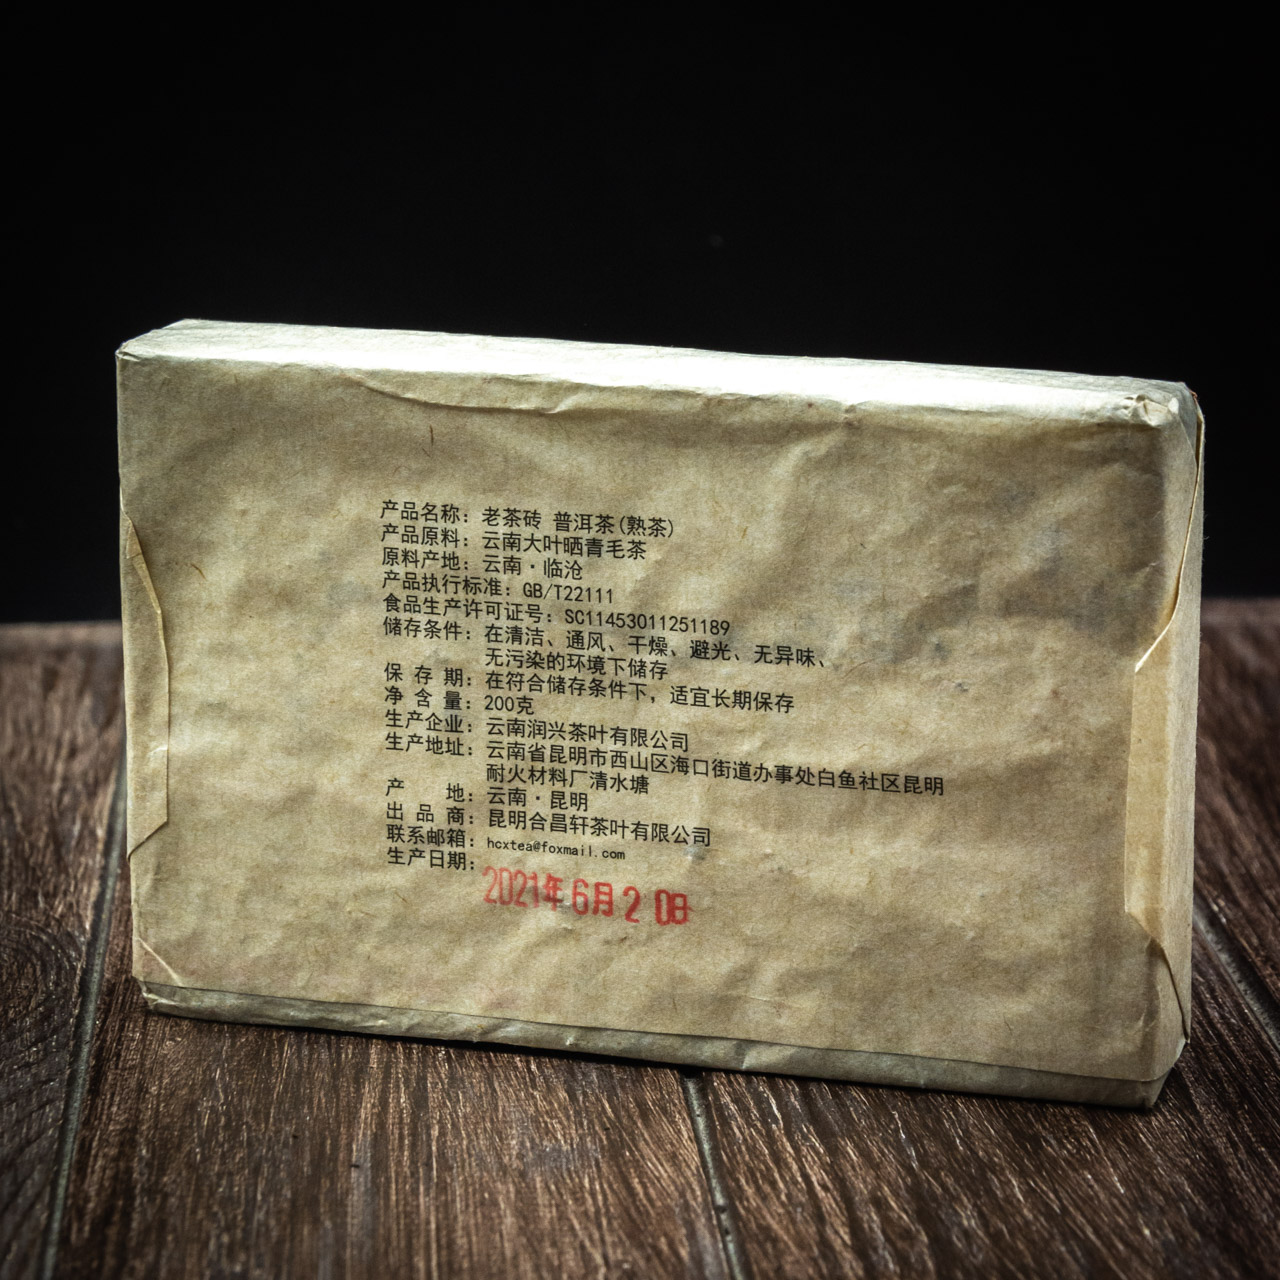 产品名称：老茶砖 普洱茶(熟茶)
产品原料：云南大叶晒青毛茶
原料产地：云南·临沧
产品执行标准：GB/T22111
食品生产许可证号：SC11453011251189
储存条件：在清洁、通风、干燥、避光、无异味、
无污染的环境下储存
保 存 期：在符合储存条件下，适宜长期保存
净 含 量：200克
生产企业：云南润兴茶叶有限公司
生产地址：云南省昆明市西山区海口街道办事处白鱼社区昆明
耐火材料厂清水塘
产 地：云南·昆明
出 品 商：昆明合昌轩茶叶有限公司
联系邮箱：hcxtea@foxmail.com
生产日期：
2021年6月20日